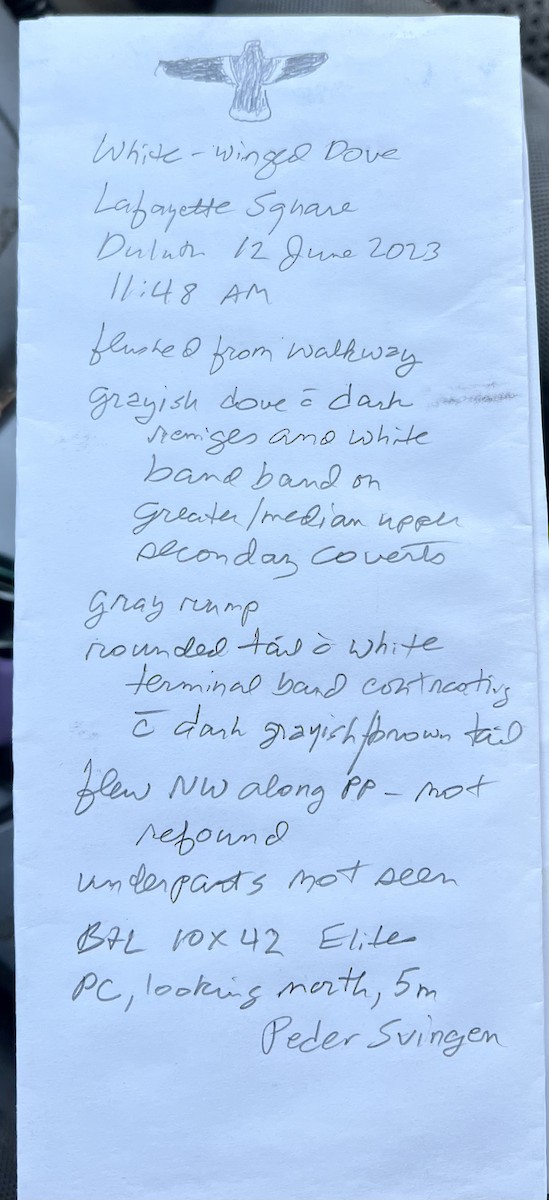 White-winged Dove
Lafayette Square
Duluth 12 June 2023
11:48 AM
flushed from walkway
grayish dove c̄ dark
remiges and white
band band on
greater/median upper
seconday coverts
gray rump
rounded tail c̄ white
terminal band contrasting
c̄ dark grayish/brown tail
flew NW along PP - not
refound
underparts not seen
B&L 10x42 Elite
PC, looking north, 5m
Peder Svingen